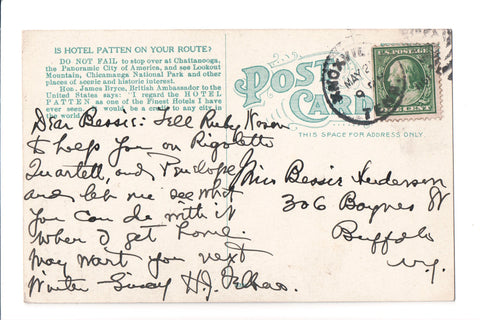 IS HOTEL PATTEN ON YOUR ROUTE?
DO NOT FAIL to stop over at Chattanooga,
the Panoramic City of America, and see Lookout
Mountain, Chicamauga National Park and other
places of scenic and historic interest.
Hon. James Bryce, British Ambassador to the
United States says: "I regard the HOTEL
PATTEN as one of the Finest Hotels I have
ever seen. would be a credit to any city in the
world."
POST
CARD
THIS SPACE FOR ADDRESS ONLY.
KNOXVILLE
MAY 2
TENN
U.S. POSTAGE
ONE CENT
Dear Bessie: Tell Ruby
to keep you on Rigoletto
Quartett, and Penelope
and let me see what
you can do with it
when I get home.
May want you next
Winter H.J.
Miss Bessie Henderson
306 Boynes St
Buffalo
N.Y.